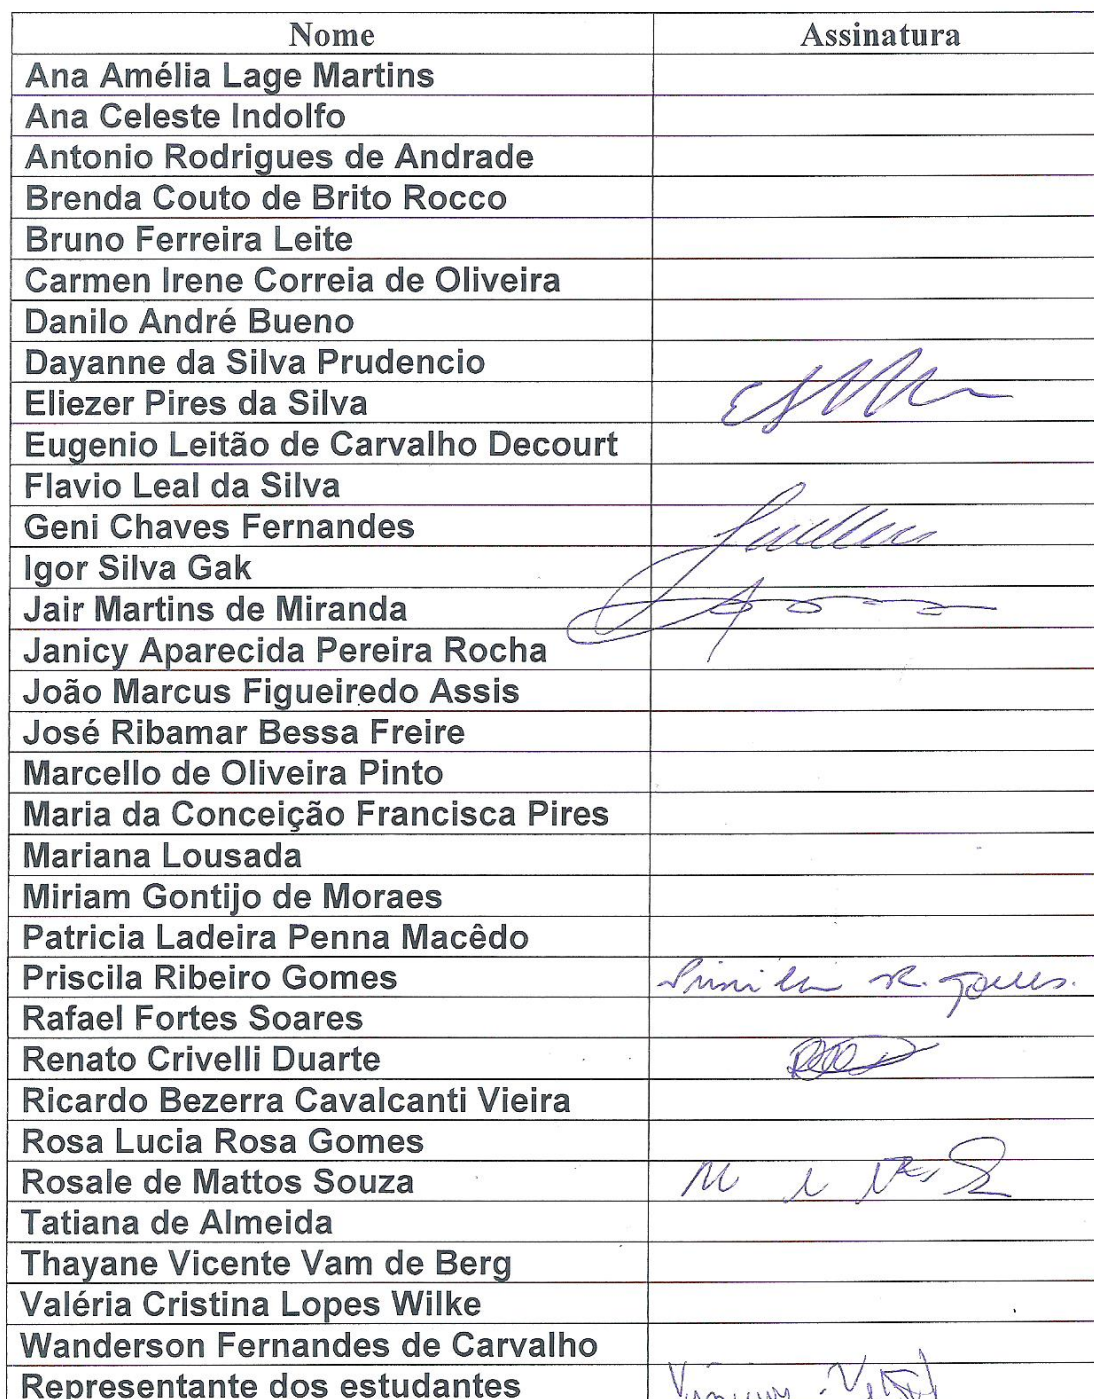 Nome Assinatura
Ana Amélia Lage Martins
Ana Celeste Indolfo
Antonio Rodrigues de Andrade
Brenda Couto de Brito Rocco
Bruno Ferreira Leite
Carmen Irene Correia de Oliveira
Danilo André Bueno
Dayanne da Silva Prudencio
Eliezer Pires da Silva
Eugenio Leitão de Carvalho Decourt
Flavio Leal da Silva
Geni Chaves Fernandes
Igor Silva Gak
Jair Martins de Miranda
Janicy Aparecida Pereira Rocha
João Marcus Figueiredo Assis
José Ribamar Bessa Freire
Marcello de Oliveira Pinto
Maria da Conceição Francisca Pires
Mariana Lousada
Miriam Gontijo de Moraes
Patricia Ladeira Penna Macêdo
Priscila Ribeiro Gomes
Rafael Fortes Soares
Renato Crivelli Duarte
Ricardo Bezerra Cavalcanti Vieira
Rosa Lucia Rosa Gomes
Rosale de Mattos Souza
Tatiana de Almeida
Thayane Vicente Vam de Berg
Valéria Cristina Lopes Wilke
Wanderson Fernandes de Carvalho
Representante dos estudantes